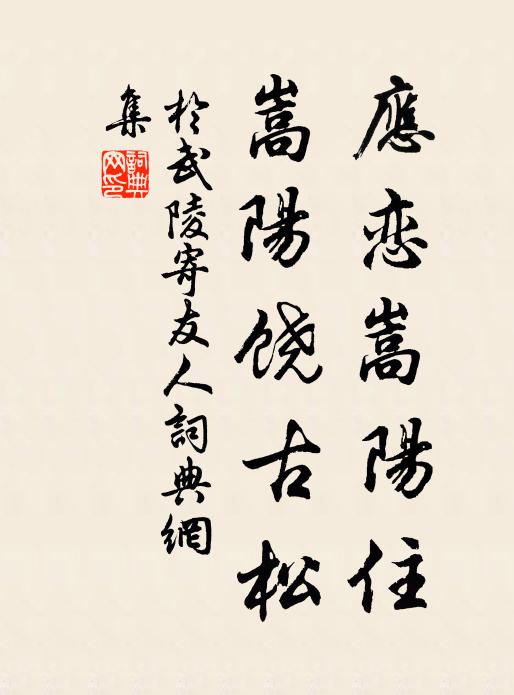 應恋嵩陽住
嵩陽饶古松
於武陵寄友人詞典網
集
詞典網印